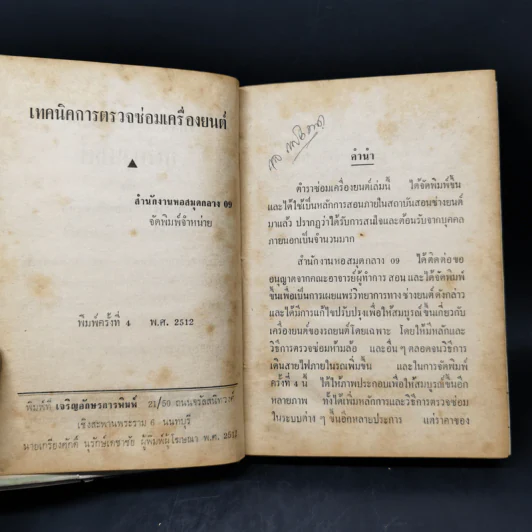 เทคนิคการตรวจซ่อมเครื่องยนต์
สำนักงานหอสมุดกลาง 09
จัดพิมพ์จำหน่าย
พิมพ์ครั้งที่ 4 พ.ศ. 2512
พิมพ์ที่ เจริญอักษรการพิมพ์ 21/50 ถนนจรัลสนิทวงศ์
เชิงสะพานพระราม 6 นนทบุรี
นายเกรียงศักดิ์ นุรักษ์เตชาชัย ผู้พิมพ์ผู้โฆษณา พ.ศ. 2512
คำนำ
ตำราซ่อมเครื่องยนต์เล่มนี้ ได้จัดพิมพ์ขึ้น
และได้ใช้เป็นหลักการสอนภายในสถาบันสอนช่างยนต์
มาแล้ว ปรากฏว่าได้รับการสนใจและต้อนรับจากบุคคล
ภายนอกเป็นจำนวนมาก
สำนักงานหอสมุดกลาง 09 ได้ติดต่อขอ
อนุญาตจากคณะอาจารย์ผู้ทำการ สอน และได้จัดพิมพ์
ขึ้นเพื่อเป็นการเผยแพร่วิทยาการทาง ช่างยนต์ดังกล่าว
และได้มีการแก้ไขปรับปรุงเพื่อให้สมบูรณ์ ขึ้นเกี่ยวกับ
เครื่องยนต์ของรถยนต์โดยเฉพาะ โดยให้มีหลักและ
วิธีการตรวจซ่อมห้ามล้อ และอื่น ๆ ตลอดจนวิธีการ
เดินสายไฟภายในรถเพิ่มขึ้น และในการจัดพิมพ์
ครั้งที่ 4 นี้ ได้ให้ภาพประกอบเพื่อให้สมบูรณ์ขึ้นอีก
หลายภาพ ทั้งได้เพิ่มหลักการและวิธีการตรวจซ่อม
ในระบบต่าง ๆ ขึ้นอีกหลายประการ แต่ราคาของ